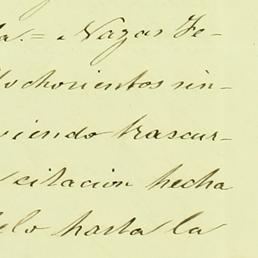 a.= Nazar Fe-
ochocientos cin-
viendo trascur-
citacion hecha
elo hasta la